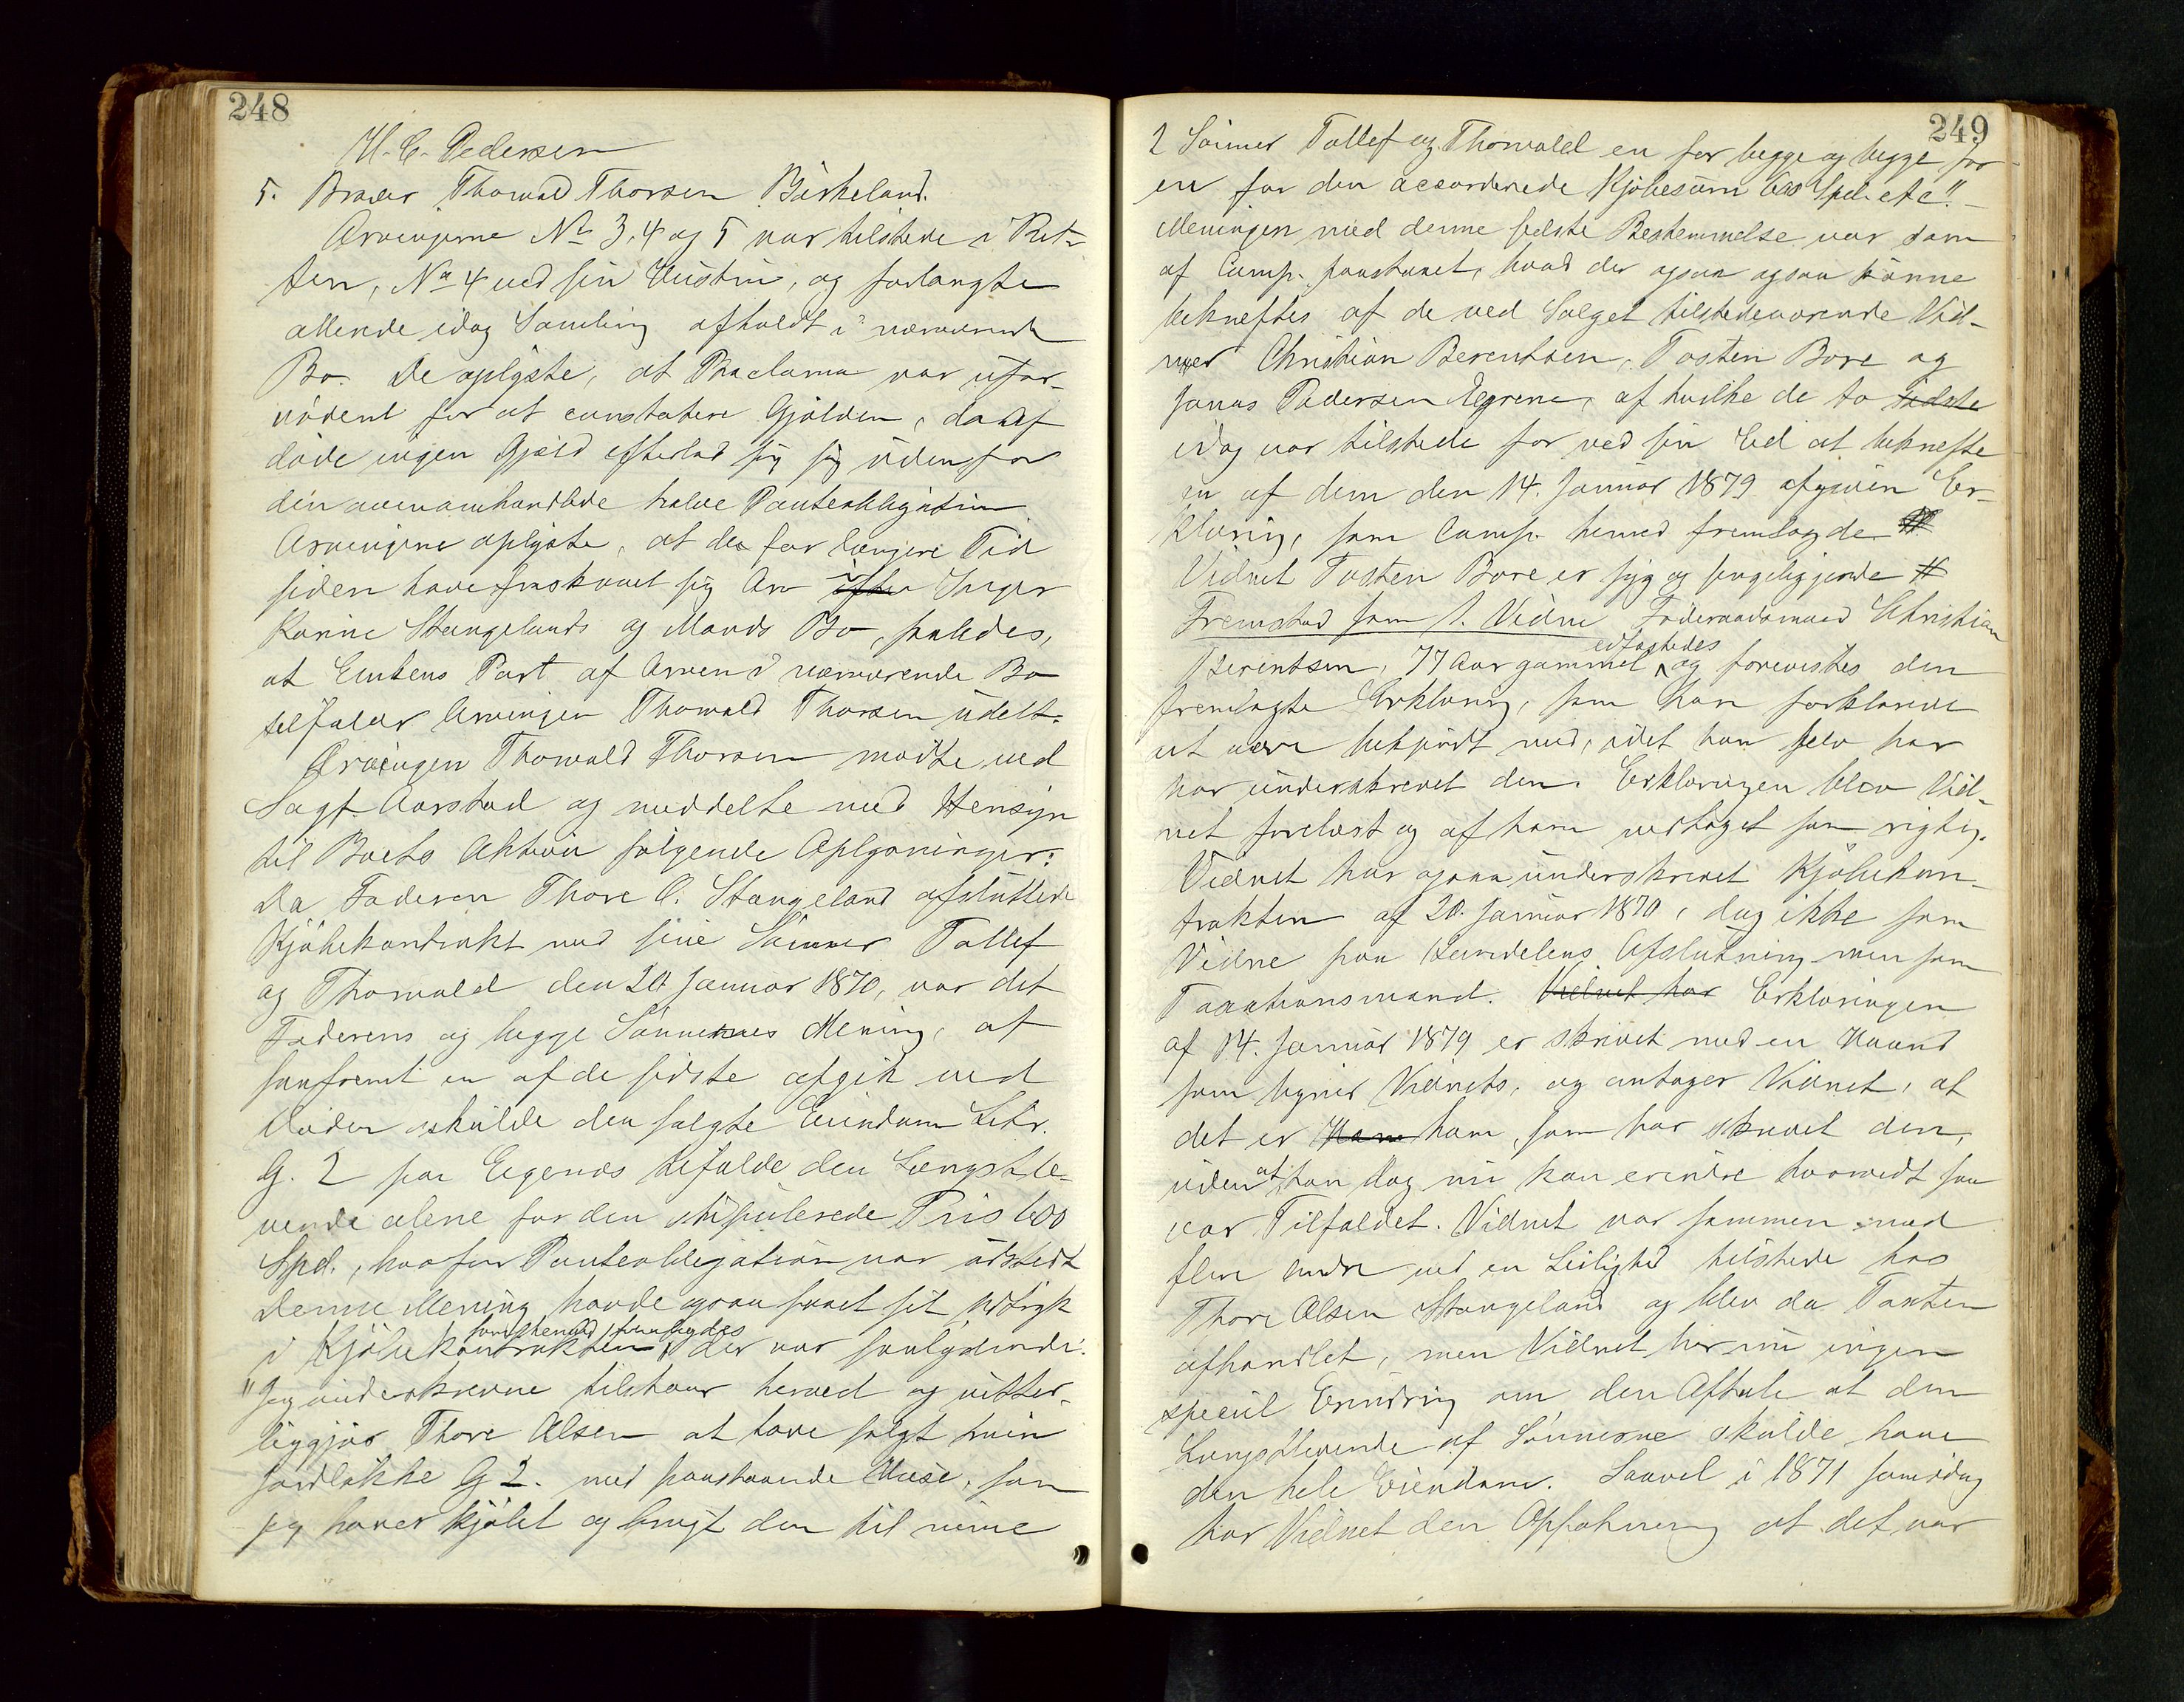 248
H. C. Pedersen
5. Broder Thorvald Thorsen Birkeland.
Arvingerne No 3, 4 og 5 var tilstede i Ret-
ten, No 4 ved sin Hustru, og forlangte
allerede idag Samling afholdt i nærværende
Bo. De oplyste, at Proclama var ufor-
nödent for at constatere Gjælden, da Af
döde ingen Gjæld efterlod sig sig udenfor
den ovenomhandlede halve Panteobligation
Arvingerne oplyste, at de for længere Tid
siden have fraskrevet sig Arv i efter Inger
Karine Stangelands og Mands Bo, saaledes,
at Enkens Part af Arven i nærværende Bo
tilfalder Arvingen Thorvald Thorsen udelt.
Arvingen Thorvald Thorsen mödte med
Sagf. Aarstad og meddelte med Hensyn
til Boets Aktiva fölgende Oplysninger:
Da Faderen Thore O. Stangeland afsluttede
Kjöbekontrakt med sine Sönner Tollef
og Thorvald den 20 Januar 1870, var det
Faderens og begge Sönnernes Mening, at
saafremt en af de sidste afgik ved
Döden skulde den solgte Eiendom Litr.
G. 2 paa Eigenæs tilfalde den Længstle-
vende alene for den stipulerede Pris 600
Spd., hvorfor Panteobligation var udstedt
Denne Mening havde ogsaa faaet sit Udtryk
i Kjöbekontrakten som hermed fremlagdes der var saalydende:
"Jeg underskrevne tilstaar herved og vitter-
liggjör Thore Olsen at have solgt min
Jordlökke G 2. med paastaaende Huse, som
jeg haver kjöbt og brugt den til mine
249
2 Sönner Tollef og Thorvald en for begge og begge for
en for den accorderede Kjöbesum 600 Spd. etc." -
Meningen med denne sidste Bestemmelse var som
af Comp. paastaaet, hvad der ogsaa ogsaa kunne
bekræftes af de ved Salget tilstedeværende Vid-
ner Christian Berentsen, Tosten Bore og
Jonas Pedersen Egrene, af hvilke de to sidste
idag var tilstede for ved sin Eed at bekræfte
en af dem den 14. Januar 1879 afgiven Er-
klæring, som Comp. hermed fremlagde #
Vidnet Tosten Bore er syg og sengeliggende #
Fremstod som 1. Vidne Föderaadsmand Christian
Berentsen, 77 Aar gammel edfæstedes og forevistes den
fremlagte Erklæring, som han forklarede
at være bekjendt med, idet han selv har
har underskrevet den. Erklæringen blev Vid-
net forelæst og af ham vedtaget som rigtig.
Vidnet har ogsaa underskrevet Kjöbekon-
trakten af 20. Januar 1870, dog ikke som
Vidne paa Handelens Afslutning men som
Taxationsmand. Vidnet har Erklæringen
af 14. Januar 1879 er skrevet med en Haand
som ligner Vidnets, og antager Vidnet, at
det er Ham ham, som har skrevet den,
uden at han dog nu kan erindre hvorvidt saa
var Tilfældet. Vidnet var sammen med
flere andre ved en Leilighed tilstede hos
Thore Olsen Stangeland og blev da Taxten
afhandlet, men Vidnet har nu ingen
speciel Erindring om den Aftale at den
Længstlevende af Sönnerne skulde have
den hele Eiendom. Saavel i 1871 som idag
har Vidnet den Opfatning at det var